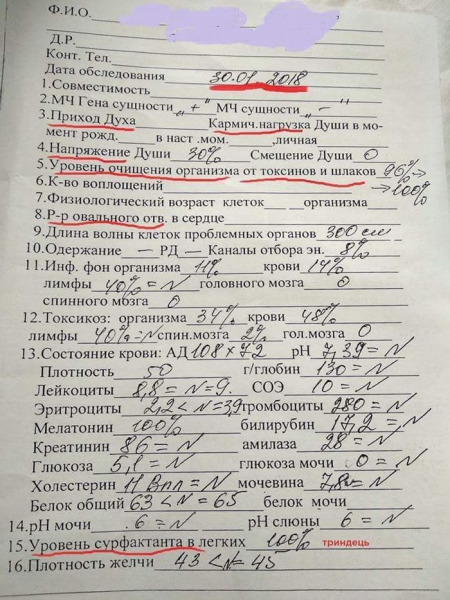 Ф.И.О.
Д.Р.
Конт. Тел.
Дата обследования 30.01 2018
1.Совместимость
2.МЧ Гена сущности „+“ МЧ сущности „−“
3.Приход Духа Кармич.нагрузка Души в мо-
мент рожд. в наст .мом. ,личная
4.Напряжение Души 30% Смещение Души 0
5.Уровень очищения организма от токсинов и шлаков 96% →
6.К-во воплощений → 100%
7.Физиологический возраст клеток организма
8.Р-р овального отв. в сердце
9.Длина волны клеток проблемных органов 300 см
10.Одержание — РД — Каналы отбора эн. 8%
11.Инф. фон организма 11% крови 14%
лимфы 40% = N головного мозга 0
спинного мозга 0
12.Токсикоз: организма 34% крови 48%
лимфы 40% = N спин.мозга 2% гол.мозга 0
13.Состояние крови: АД 108 х 72 pH 7,39 = N
Плотность 50 г/глобин 130 = N
Лейкоциты 8,8 = N = 9. СОЭ 10 = N
Эритроциты 2,2 < N = 3,9 тромбоциты 280 = N
Мелатонин 100% билирубин 17,2 = N
Креатинин 86 = N амилаза 28 = N
Глюкоза 5,1 = N глюкоза мочи 0 = N
Холестерин N ВПЛ = N мочевина 7,8 = N
Белок общий 63 < N = 65 белок мочи
14.pH мочи 6 = N pH слюны 6 = N
15.Уровень сурфактанта в легких 100% триндець
16.Плотность желчи 43 < N = 45